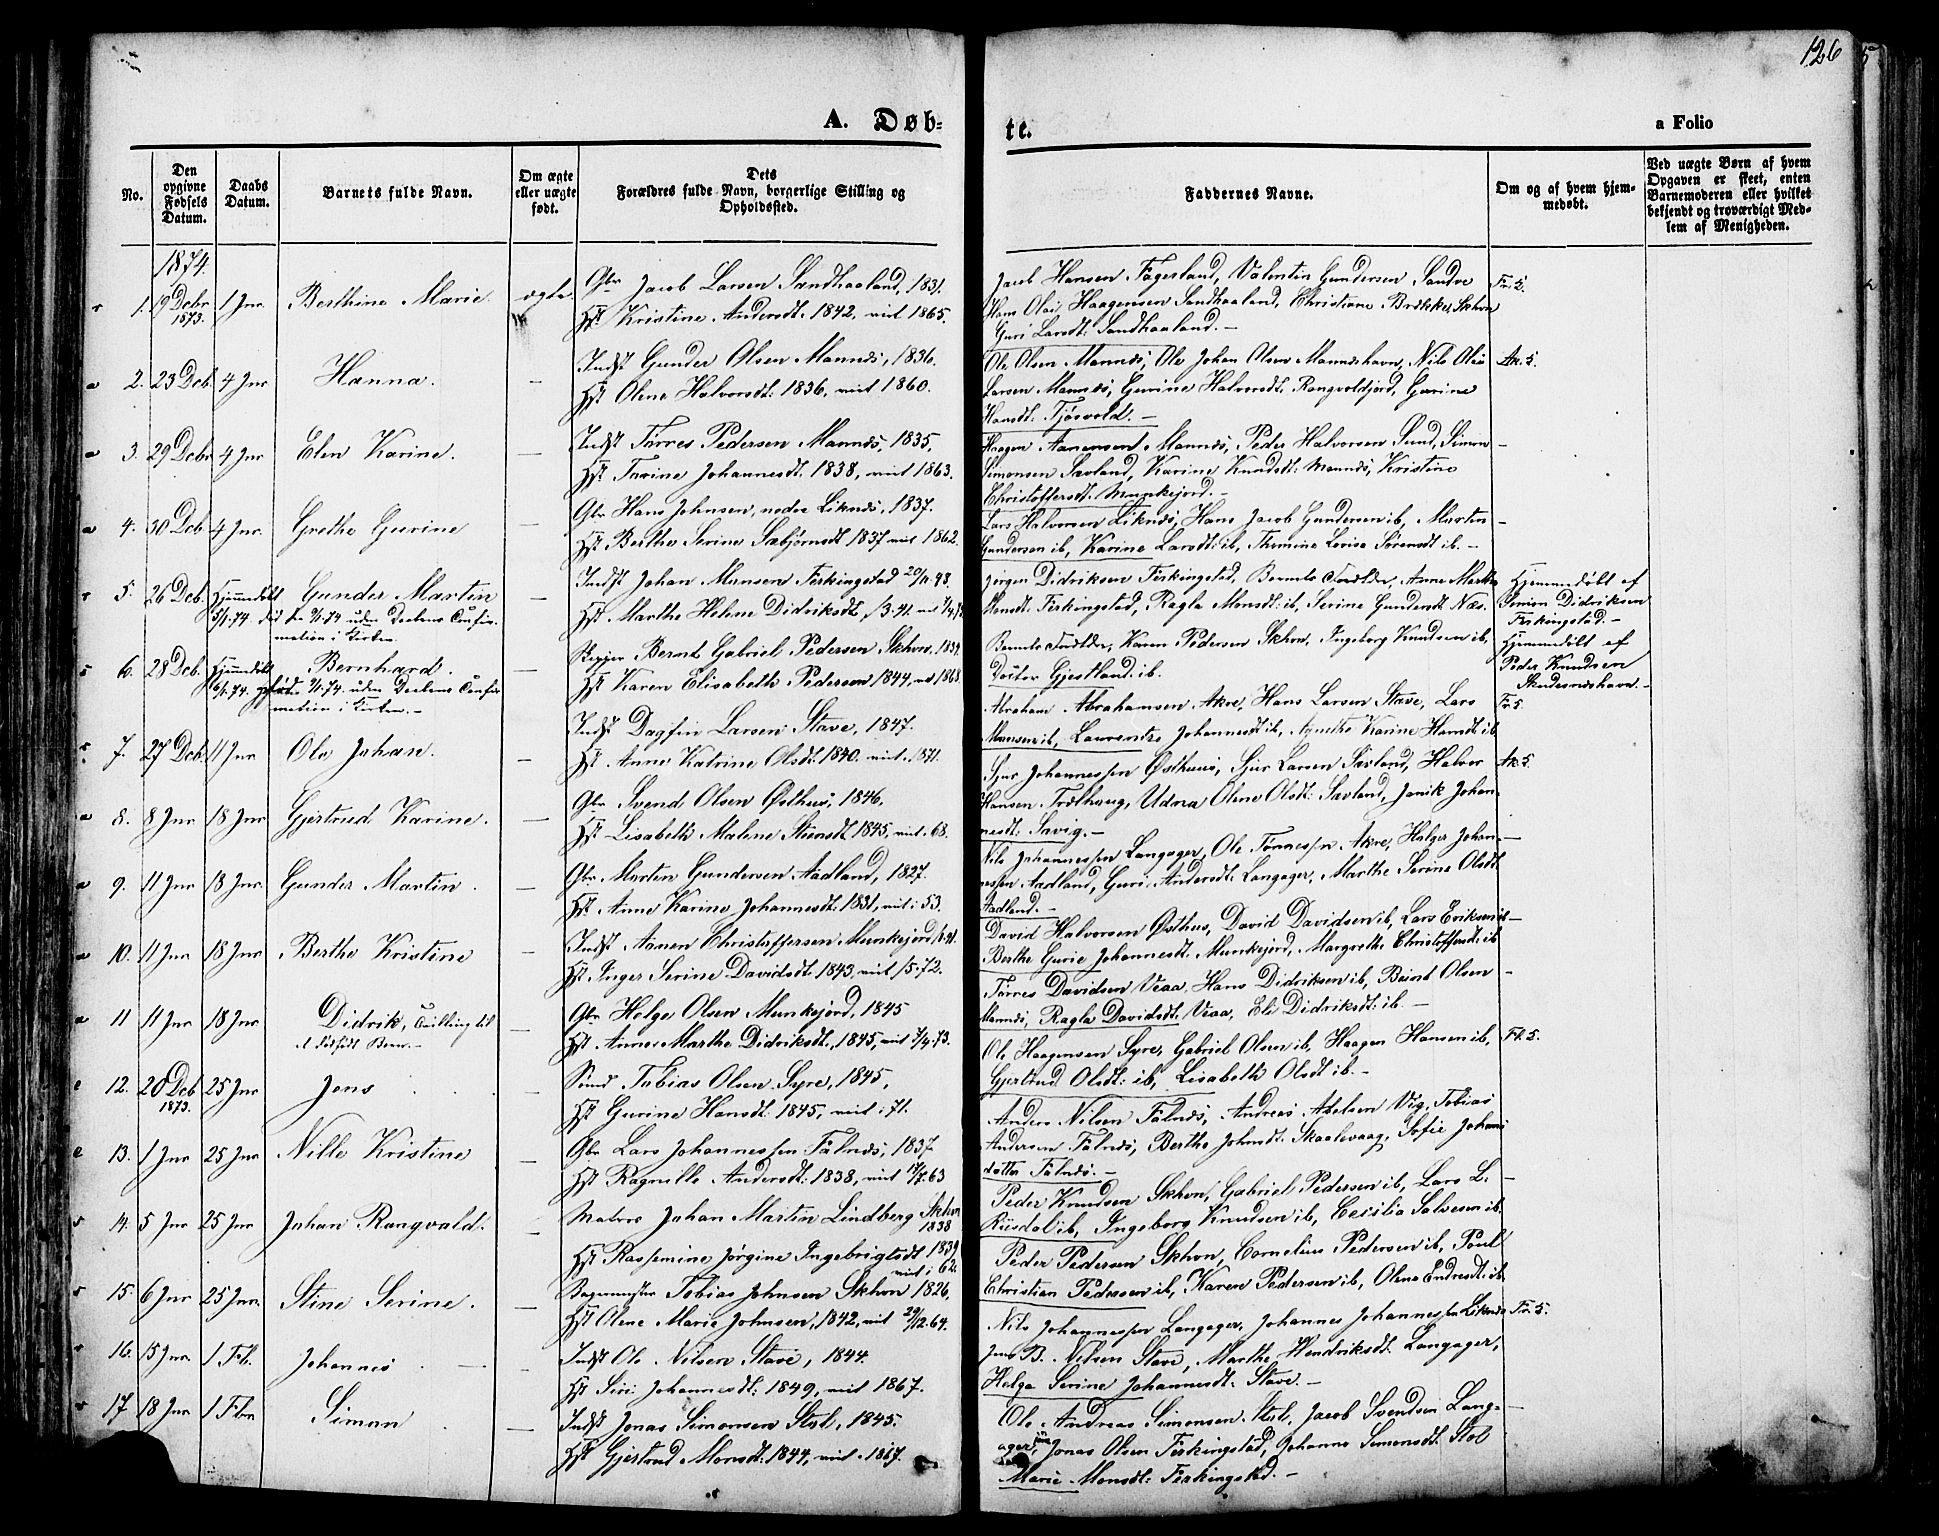 126
A. Døb=
te.
a Folio
No.
Den opgivne Fødsels Datum.
Daabs Datum.
Barnets fulde Navn.
Om ægte eller uægte født.
Dets Forældres fulde Navn, borgerlige Stilling og Opholdssted.
Faddernes Navne.
Om og af hvem hjemmedøbt.
Ved uægte Børn af hvem Opgaven er skeet, enten Barnemoderen eller hvilket bekjendt og troværdigt Medlem af Menigheden.
1874.
1. 19 Decbr 1873. 1 Jnr Berthine Marie. ægte
Gbr Jacob Larsen Sandhaaland, 1831.
Hst Kristine Andersdt. 1842, viet 1865.
Jacob Hansen Fagerland, Valentin Gundersen Sandve
Hans Olai Haagensen Sandhaaland, Christiane Brekke, Skhvn
Guri Larsdt: Sandhaaland. —
2. 23 Dcb. 4 Jnr Hanna. —
Indst Gunder Olsen Mannes, 1836.
Hst Olene Halvorsdt: 1836, viet 1860.
Ole Olsen Mannes, Ole Johan Olsen Manneshavn, Nils Olai
Larsen Mannes, Gurine Halvorsdt: Rangvaldjord, Gurine
Hansdt: Tjøsvold. —
Ak. S.
3. 29 Decbr 4 Jnr Elen Karine. —
Indst Tørres Pedersen Mannes, 1835,
Hst Tarine Johannesdt. 1838, viet 1863.
Haagen Aanensen Mannes, Peder Halvorsen Sund, Simon
Simonsen Savland, Karine Knudsdt: Mannes, Kristine
Christoffersdt: Munkejord. —
4. 30 Dcb 4 Jnr. Grethe Gurine —
Gbr Hans Johnsen, nedre Liknes, 1837.
Hst Berthe Serine Sæbjørnsdt 1837 viet 1862.
Lars Halvorsen Liknes, Hans Jacob Gundersen ib, Martin
Gundersen ib, Karine Larsdt: ib, Thomine Lovise Sørensdt ib. —
5. 26 Dcb. Hjemmedøbt Gunder Martin —
74 uden Daabens Confirmation i Kirken.
Indst Johan Monsen Ferkingstad 20/11.48.
Hst Marthe Helene Didriksdt,
Jørgen Didriksen Ferkingstad, Barnets Forældre, Anne Marthe
Monsdt: Ferkingstad, Ragla Monsdt: ib, Serine Gundersdt Næs.
Hjemmedøbt af
Simon Didriksen
Ferkingstad. —
6. 28 Dcb. Hjemmedøbt Bernhard. —
74 uden Daabens Confirmation i Kirken. —
Bernt Gabriel Pedersen Skhvn. 1839.
Hst Karen Elisabeth Pedersen 1844, vt 1868
Barnets Forældre, Karen Pedersen Skhvn, Ingeborg Knudsen ib,
Gjestland: ib.
Hjemmedøbt af
Peder Knudsen
Skudesneshavn. —
7. 27 Dcb. 11 Jnr Ole Johan. —
Indst Dagfin Larsen Stave, 1847.
Hst Anne Katrine Olsdt. 1840. viet. 1871.
Abraham Abrahamsen Akre, Hans Larsen Stave, Lars
Monsen ib, Laurentse Johannesdt ib, Agnethe Karine Hansdt ib
Fr. S.
8. 8 Jnr 18 Jnr Gjertrud Karine. —
Gbr Svend Olsen Østhus, 1846,
Hst Lisabeth Malene Steensdt 1845, viet. 68.
Sjur Johannessen Østhuus, Sjur Larsen Savland, Halvor
Hansen Trælhaug, Udna Olene Olsdt: Savland, Janik Johan-
nesdt: Savig. —
Ak. S.
9. 11 Jnr 18 Jnr. Gunder Martin. —
Gbr. Martin Gundersen Aadland, 1827.
Hst Anne Karine Johannesdt: 1831, viet: 53.
Nils Johannessen Langager, Ole Tørressen Akre, Helger Johan-
nessen Aadland, Guri Andersdt: Langager, Marthe Serine Olsdt
Aadland. —
10. 11 Jnr 18 Jnr Berthe Kristine —
Indst Aanen Christoffersen Munkejord
Hst Inger Serine Davidsdt. 1843, viet
David Halvorsen Østhus, David Davidsen ib, Lars Eriksen ib
Berthe Gurie Johannesdt. Munkejord, Margrethe Christoffersdt: ib
11 11 Jnr 18 Jnr Didrik, Tvilling til
et dødfødt Barn. —
Gbr Helge Olsen Munkejord, 1845
Hst Anne Marthe Didriksdt., 1845, viet 7/4.73.
Tørres Davidsen Veaa, Hans Didriksen ib, Bernt Olsen
Mannes, Ragla Davidsdt: Veaa, Eli Didriksdt: ib. —
12. 20 Dcb 1873. 25 Jnr Jens
Smed Tobias Olsen Syre, 1845,
Hst Gurine Hansdt. 1845, viet: 71.
Ole Haagensen Syre, Gabriel Olsen ib, Haagen Hansen ib,
Gjertrud Olsdt: ib, Lisabeth Olsdt ib. —
13. 1 Jnr 25 Jnr Nille Kristine —
Gbr Lars Johannessen Falnes, 1837
Hst Ragnille Andersdt: 1838, viet 17/7.63
Anders Nilsen Falnes, Andreas Abelsen Vig, Tobias
Andersen Falnes, Berthe Johnsdt: Skaalevaag, Sofie Johans
datter Falnes. —
14. 5 Jnr 25 Jnr Johan Rangvald. —
Matros Johan Martin Lindberg Skhvn 1838
Hst Rasmine Jørgine Ingebrigtsdt 1839
viet: 62
Peder Knudsen Skhvn, Gabriel Pedersen ib, Lars L.
Riisdal ib, Ingeborg Knudsen ib, Cecilia Salvesen ib.
15. 6 Jnr 25 Jnr. Stine Serine. —
Tobias Johnsen Skhvn 1826,
Hst Olene Marie Johnsen, 1842, viet 29/12.64.
Peder Pedersen Skhvn, Cornelius Pedersen ib, Poul
Christian Pedersen ib, Karen Pedersen ib, Olene Endresdt: ib
16. 15 Jnr. 1 Fb. Johannes —
Indst Ole Nilsen Stave, 1844.
Hst Siri Johannesdt: 1849, viet 1867.
Nils Johannessen Langager, Johannes Johannessen Liknes
Jens B. Nilsen Stave, Marthe Hendriksdt. Langager,
Helga Serine Johannesdt. Stave. —
Fr. S.
17 18 Jnr 1 Fbr Simon —
Indst Jonas Simonsen Stol, 1845.
Hst Gjertrud Monsdt. 1844, viet. 1867.
Ole Andreas Simonsen Stol, Jacob Svendsen Lang-
ager, Jonas Olsen Ferkingstad, Johanne Simonsdt. Stol
Marie Monsdt: Ferkingstad. —